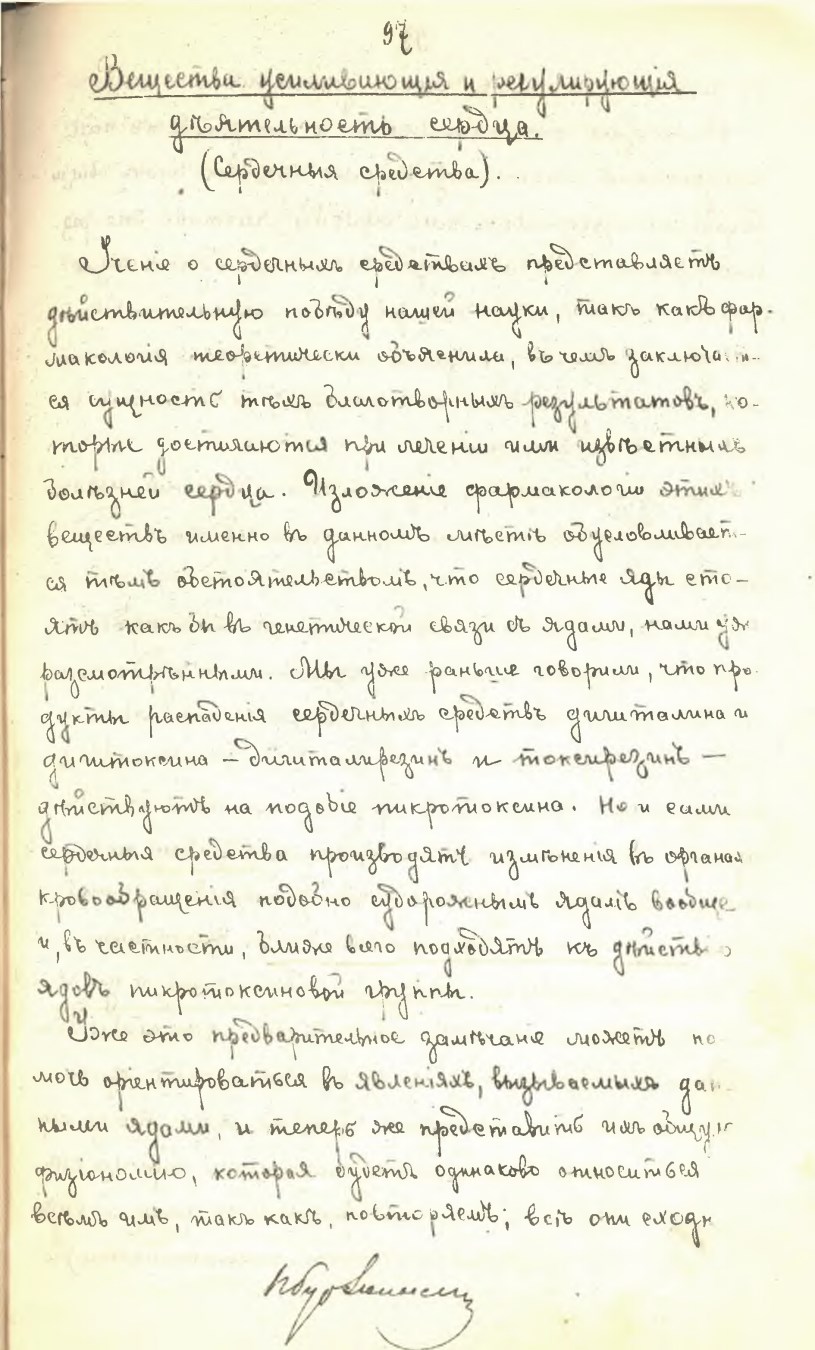 97
Вещества усиливающія и регулирующія
дѣятельность сердца.
(Сердечныя средства).
Ученіе о сердечныхъ средствахъ представляетъ
дѣйствительную побѣду нашей науки, такъ какъ фар-
макологія теоретически объяснила, въ чемъ
ся сущность тѣхъ благотворныхъ результатовъ, ко-
торые достигаются при леченіи ими извѣстныхъ
болѣзней сердца. Изложеніе фармакологіи этихъ
веществъ именно въ данномъ мѣстѣ обусловливает-
ся тѣмъ обстоятельствомъ, что сердечные яды сто-
ятъ какъ бы въ генетической связи съ ядами, нами уже
разсмотрѣнными. Мы уже раньше говорили, что про-
дукты распаденія сердечныхъ средствъ дигиталина и
дигитоксина – дигиталирезинъ и токсирезинъ –
дѣйствуютъ на подобіе пикротоксина. Но и сами
сердечныя средства производятъ измѣненія въ органах
кровообращенія подобно судорожнымъ ядамъ вообще
и, въ частности, ближе всего подходятъ къ
ядовъ пикротоксиновой группы.
Уже это предварительное замѣчаніе можетъ по
мочь оріентироваться въ явленіяхъ, вызываемыхъ дан-
ными ядами, и теперь же представить ихъ общую
физіономію, которая будетъ одинаково относиться
всѣмъ имъ, такъ какъ, повторяемъ; всѣ они сходн